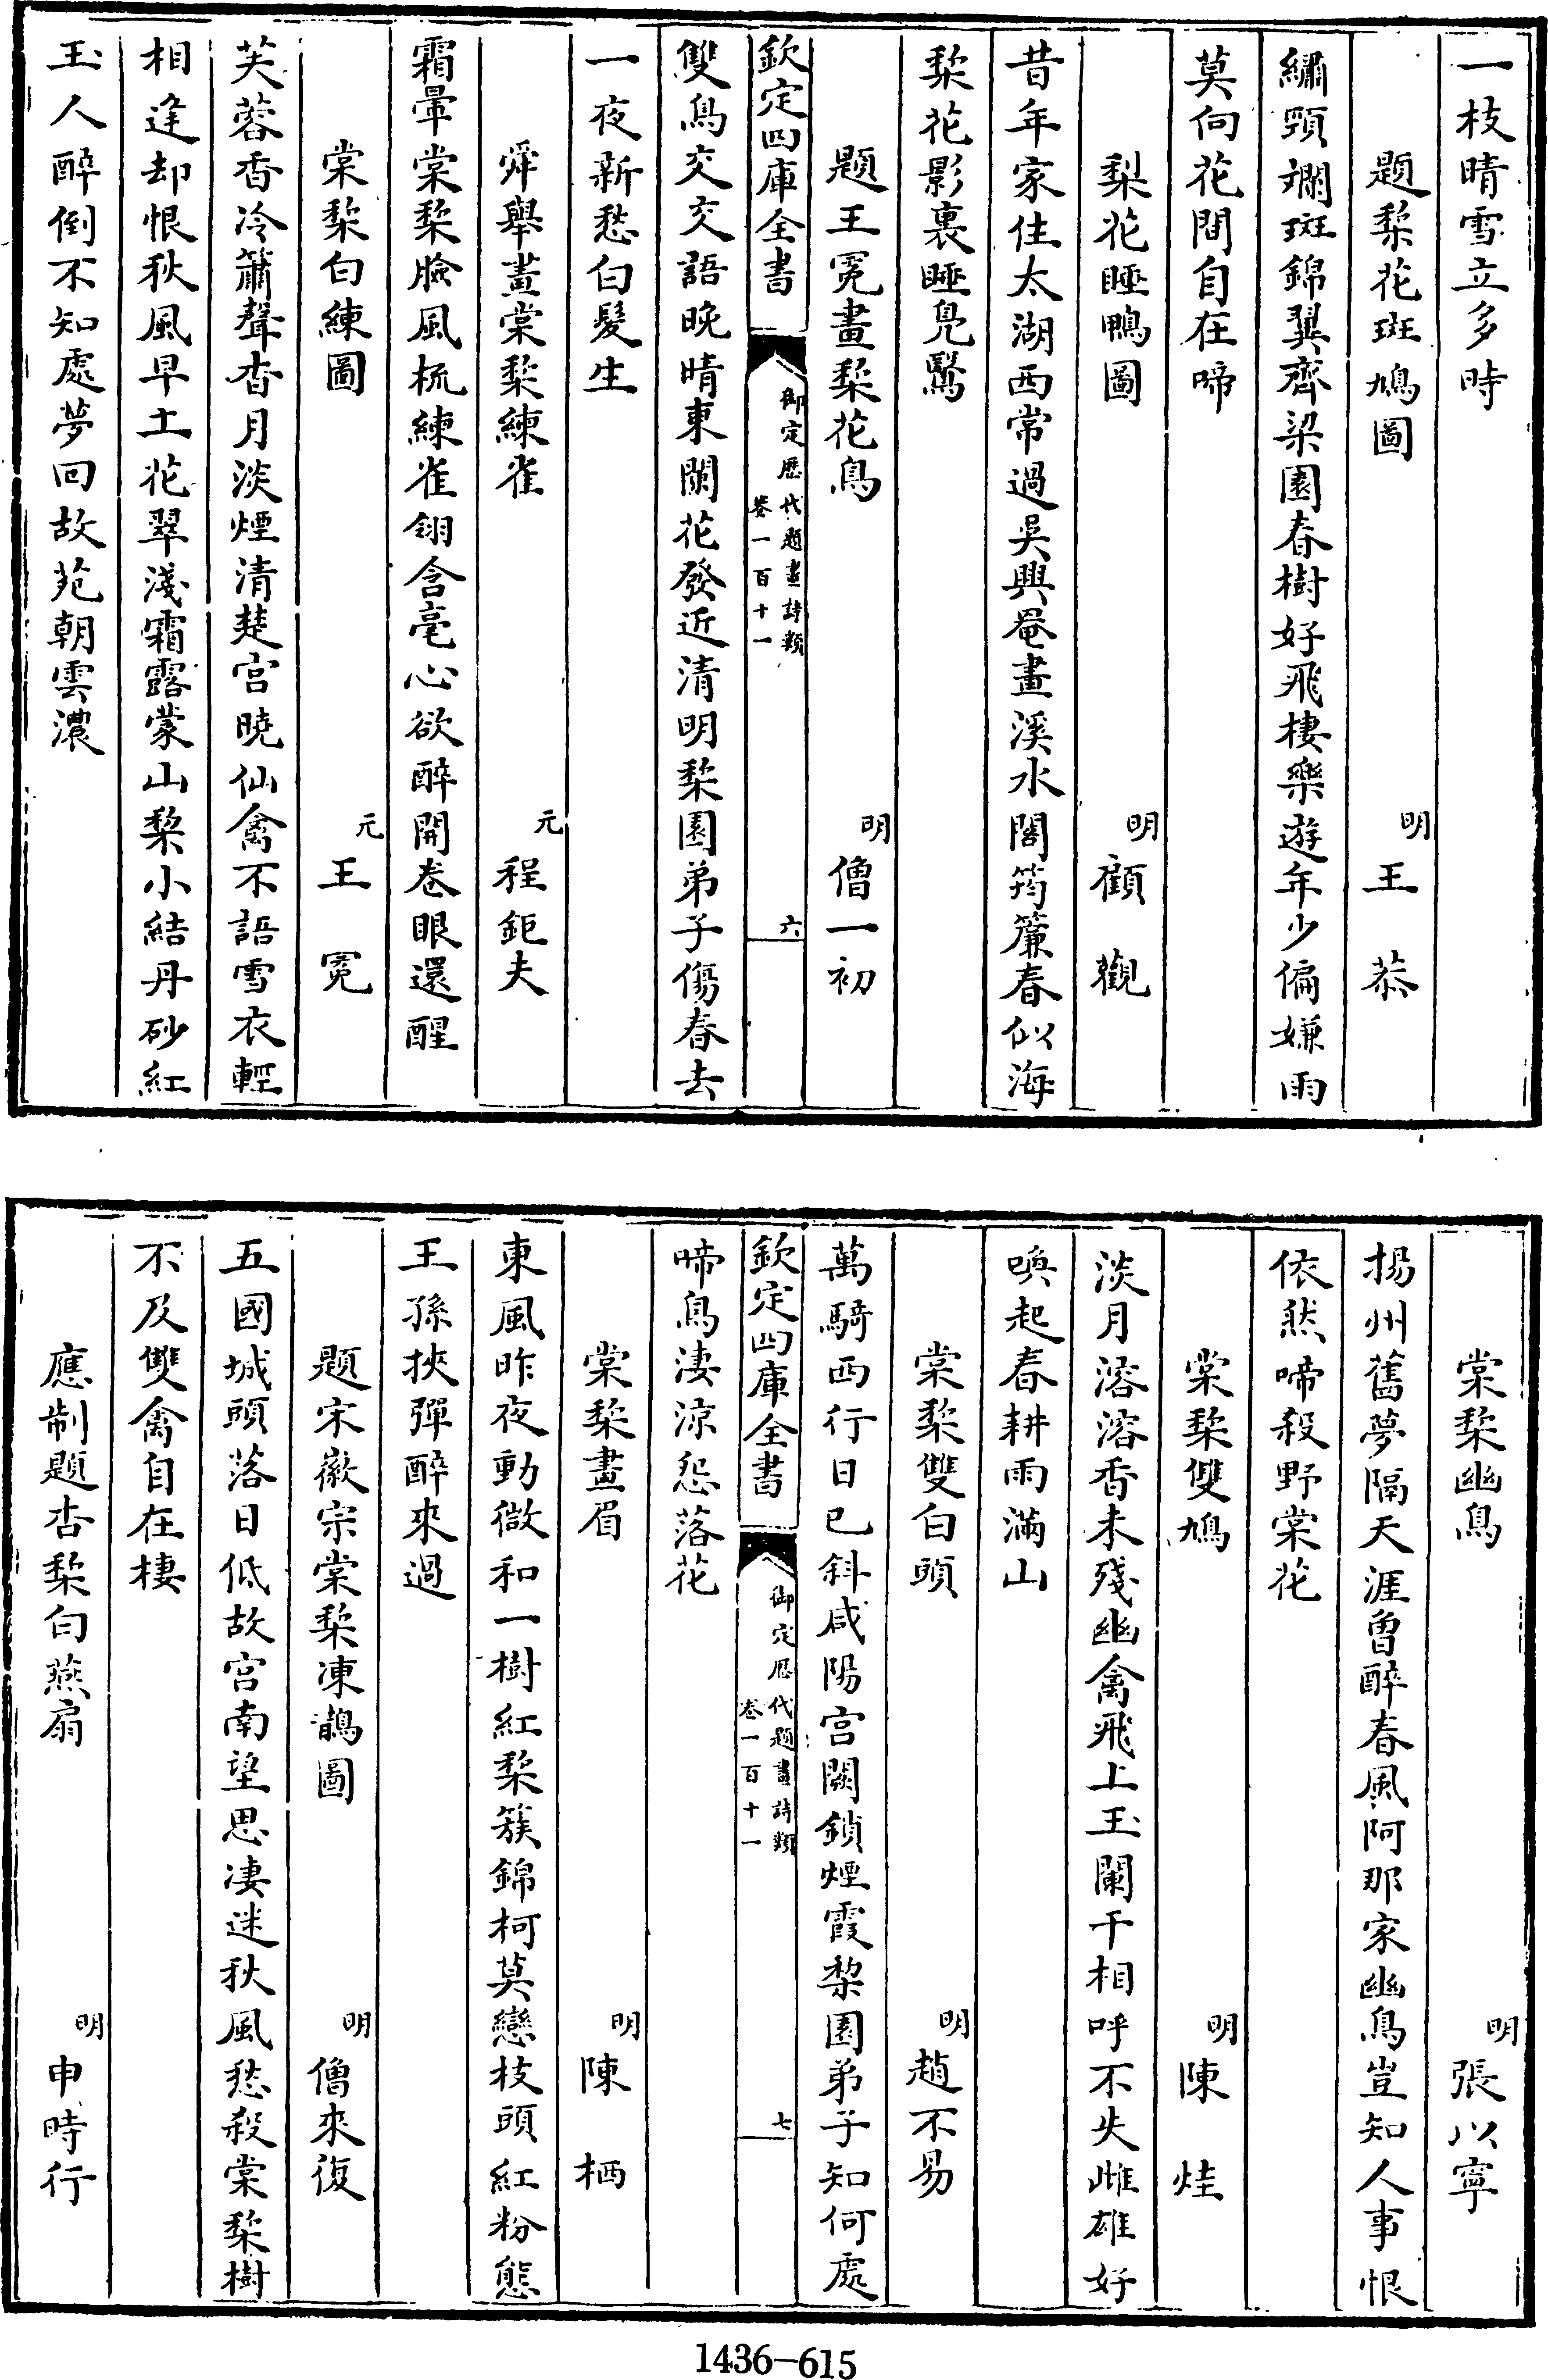 一枝晴雪立多時
題棃花斑鳩圖
明
王恭
繡頸斕斑錦翼齊梁園春樹好飛棲樂遊年少偏嫌雨
莫向花間自在啼
梨花睡鴨圖
明
顧觀
昔年家住太湖西常過吳興罨畫溪水閣筠簾春似海
棃花影裏睡鳧鷖
題王冕畫棃花鳥
明
僧一初
欽定四庫全書
御定歷代題畫詩類
卷一百十一
六
雙鳥交交語晚晴東闌花發近清明棃園弟子傷春去
一夜新愁白髮生
舜舉畫棠棃練雀
元
程鉅夫
霜暈棠棃臉風梳練雀翎含毫心欲醉開卷眼還醒
棠棃白練圖
元
王冕
芙蓉香冷簫聲杳月淡煙清楚宮曉仙禽不語雪衣輕
相逢却恨秋風早土花翠淺霜露蒙山棃小結丹砂紅
玉人醉倒不知處夢回故苑朝雲濃
棠棃幽鳥
明
張以寧
揚州舊夢隔天涯曾醉春風阿那家幽鳥豈知人事恨
依然啼殺野棠花
棠棃雙鳩
明
陳烓
淡月溶溶香未殘幽禽飛上玉闌干相呼不失雌雄好
喚起春耕雨滿山
棠棃雙白頭
明
趙不易
萬騎西行日已斜咸陽宮闕鎖煙霞棃園弟子知何處
欽定四庫全書
御定歷代題畫詩類
卷一百十一
七
啼鳥淒涼怨落花
棠棃畫眉
明
陳栖
東風昨夜動微和一樹紅棃簇錦柯莫戀枝頭紅粉態
王孫挾彈醉來過
題宋徽宗棠棃凍鵲圖
明
僧來復
五國城頭落日低故宮南望思凄迷秋風愁殺棠棃樹
不及雙禽自在棲
應制題杏棃白燕扇
明
申時行
1436-615